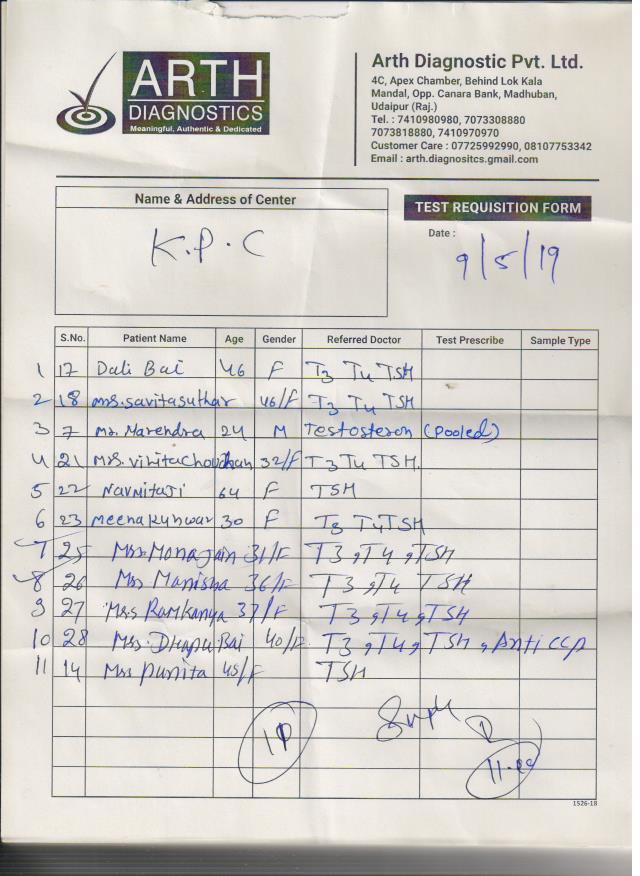 ARTH
DIAGNOSTICS
Meaningful, Authentic & Dedicated
Arth Diagnostic Pvt. Ltd.
4C, Apex Chamber, Behind Lok Kala
Mandal, Opp. Canara Bank, Madhuban,
Udaipur (Raj.)
Tel. : 7410980980, 7073308880
7073818880, 7410970970
Customer Care : 07725992990, 08107753342
Email : arth.diagnositcs.gmail.com
Name & Address of Center
K.P.C
TEST REQUISITION FORM
Date :
9/5/19
S.No. Patient Name Age Gender Referred Doctor Test Prescribe Sample Type
1 17 Dali Bai 46 F T3 T4 TSH
2 18 mrs.savitasuthar 46/F T3 T4 TSH
3 7 mr. Narendra 24 M Testosteron (pooled)
4 21 mrs. 32/F T3 T4 TSH.
5 22 64 F TSH
6 23 meena kunwar 30 F T3 T4 TSH
7 25 Mrs. Mona jain 31/F T3,T4,TSH
8 26 Mrs Manisha 36/F T3,T4 TSH
9 27 Mrs Ramkanya 37/F T3,T4,TSH
10 28 Mrs Bai 40/F T3,T4,TSH,Anti CCP
11 14 Mrs punita 45/F TSH
1526-18